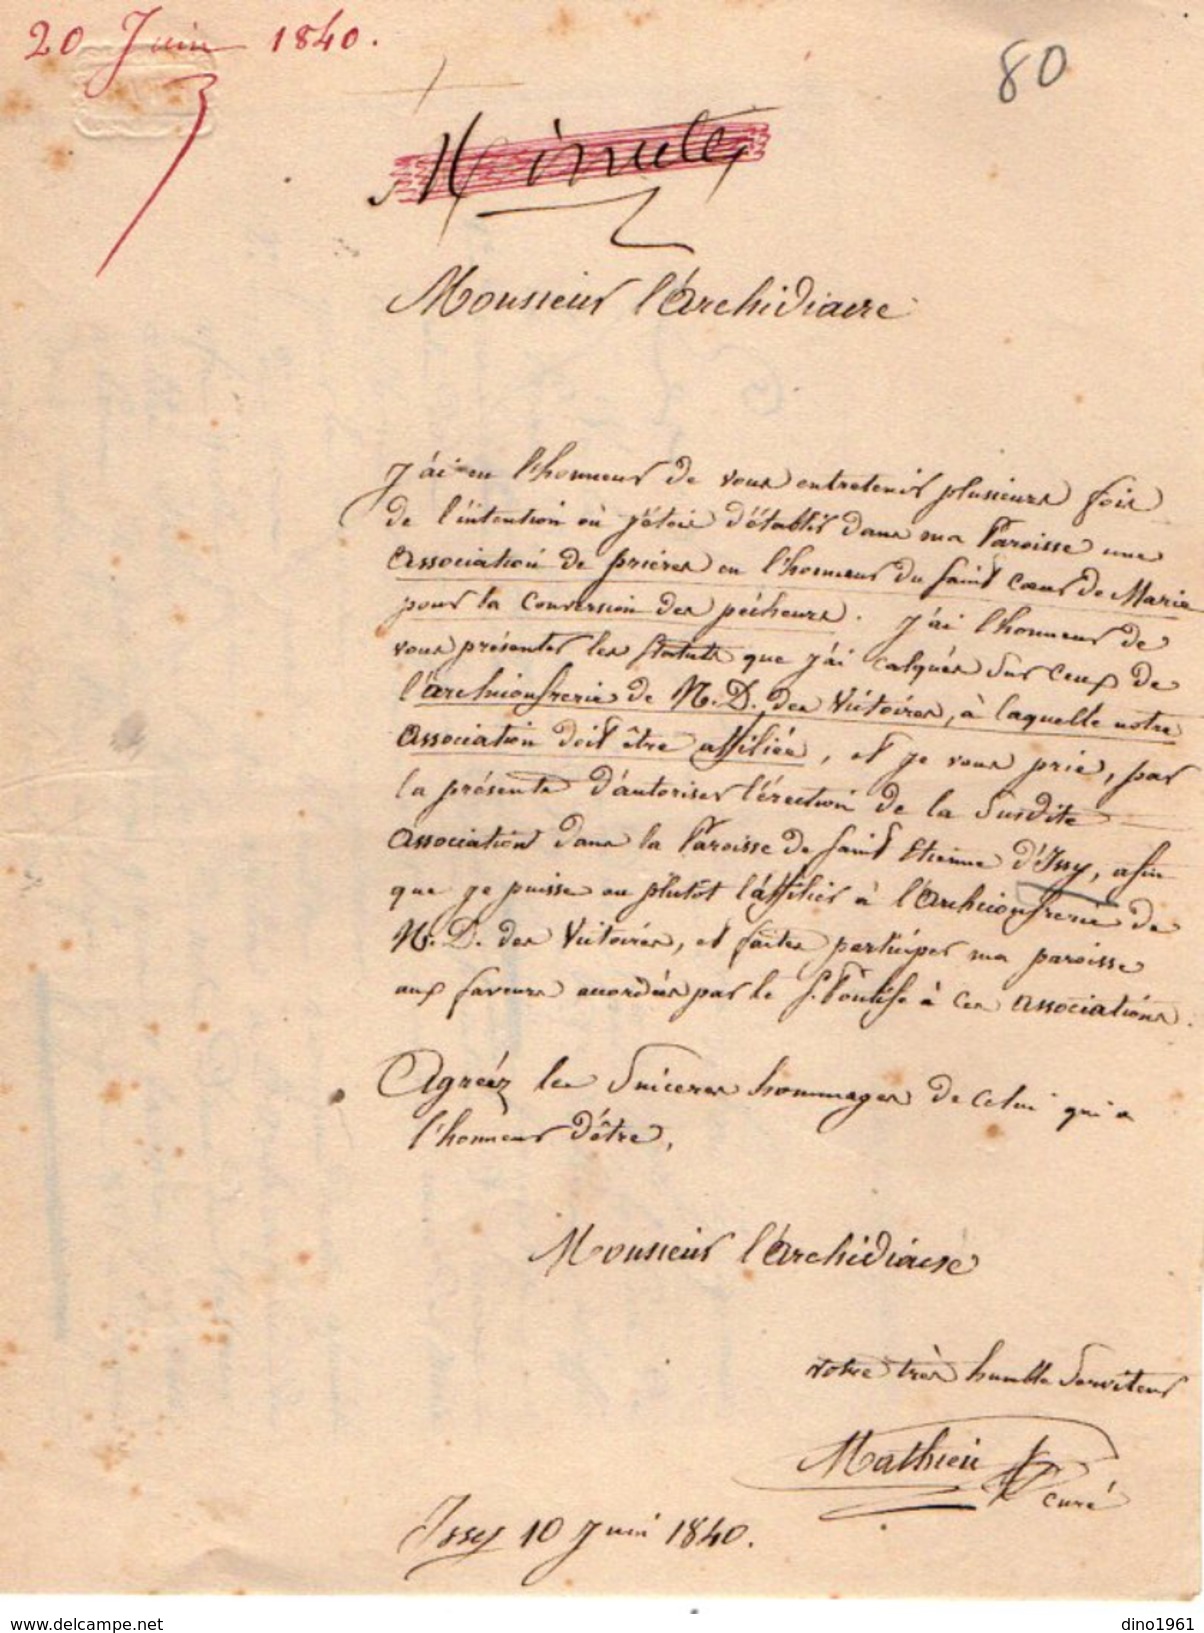 20 Juin 1840.
80
Minute
Monsieur l'archidiacre
J'ai eu l'honneur de vous entretenir plusieurs fois
de l'intention où j'étois d'établir dans ma Paroisse une
association de prières en l'honneur du saint Cœur de Marie
pour la conversion des pécheurs. J'ai l'honneur de
vous présenter les statuts que j'ai calqués sur ceux de
l'archiconfrerie de N. D. des Victoires, à laquelle notre
association doit être affiliée, et je vous prie, par
la présente d'autoriser l'érection de la susdite
association dans la Paroisse de saint Etienne d'Issy, afin
que je puisse ou plutôt l'affilier à l'archiconfrerie de
N. D. des Victoires, et faire participer ma paroisse
aux faveurs accordées par le S. Pontife à ces associations.
Agréez les sincères hommages de celui qui a
l'honneur d'être,
Monsieur l'archidiacre
votre très humble serviteur
Mathieu
curé
Issy 10 Juin 1840.
www.delcampe.net
dino1961